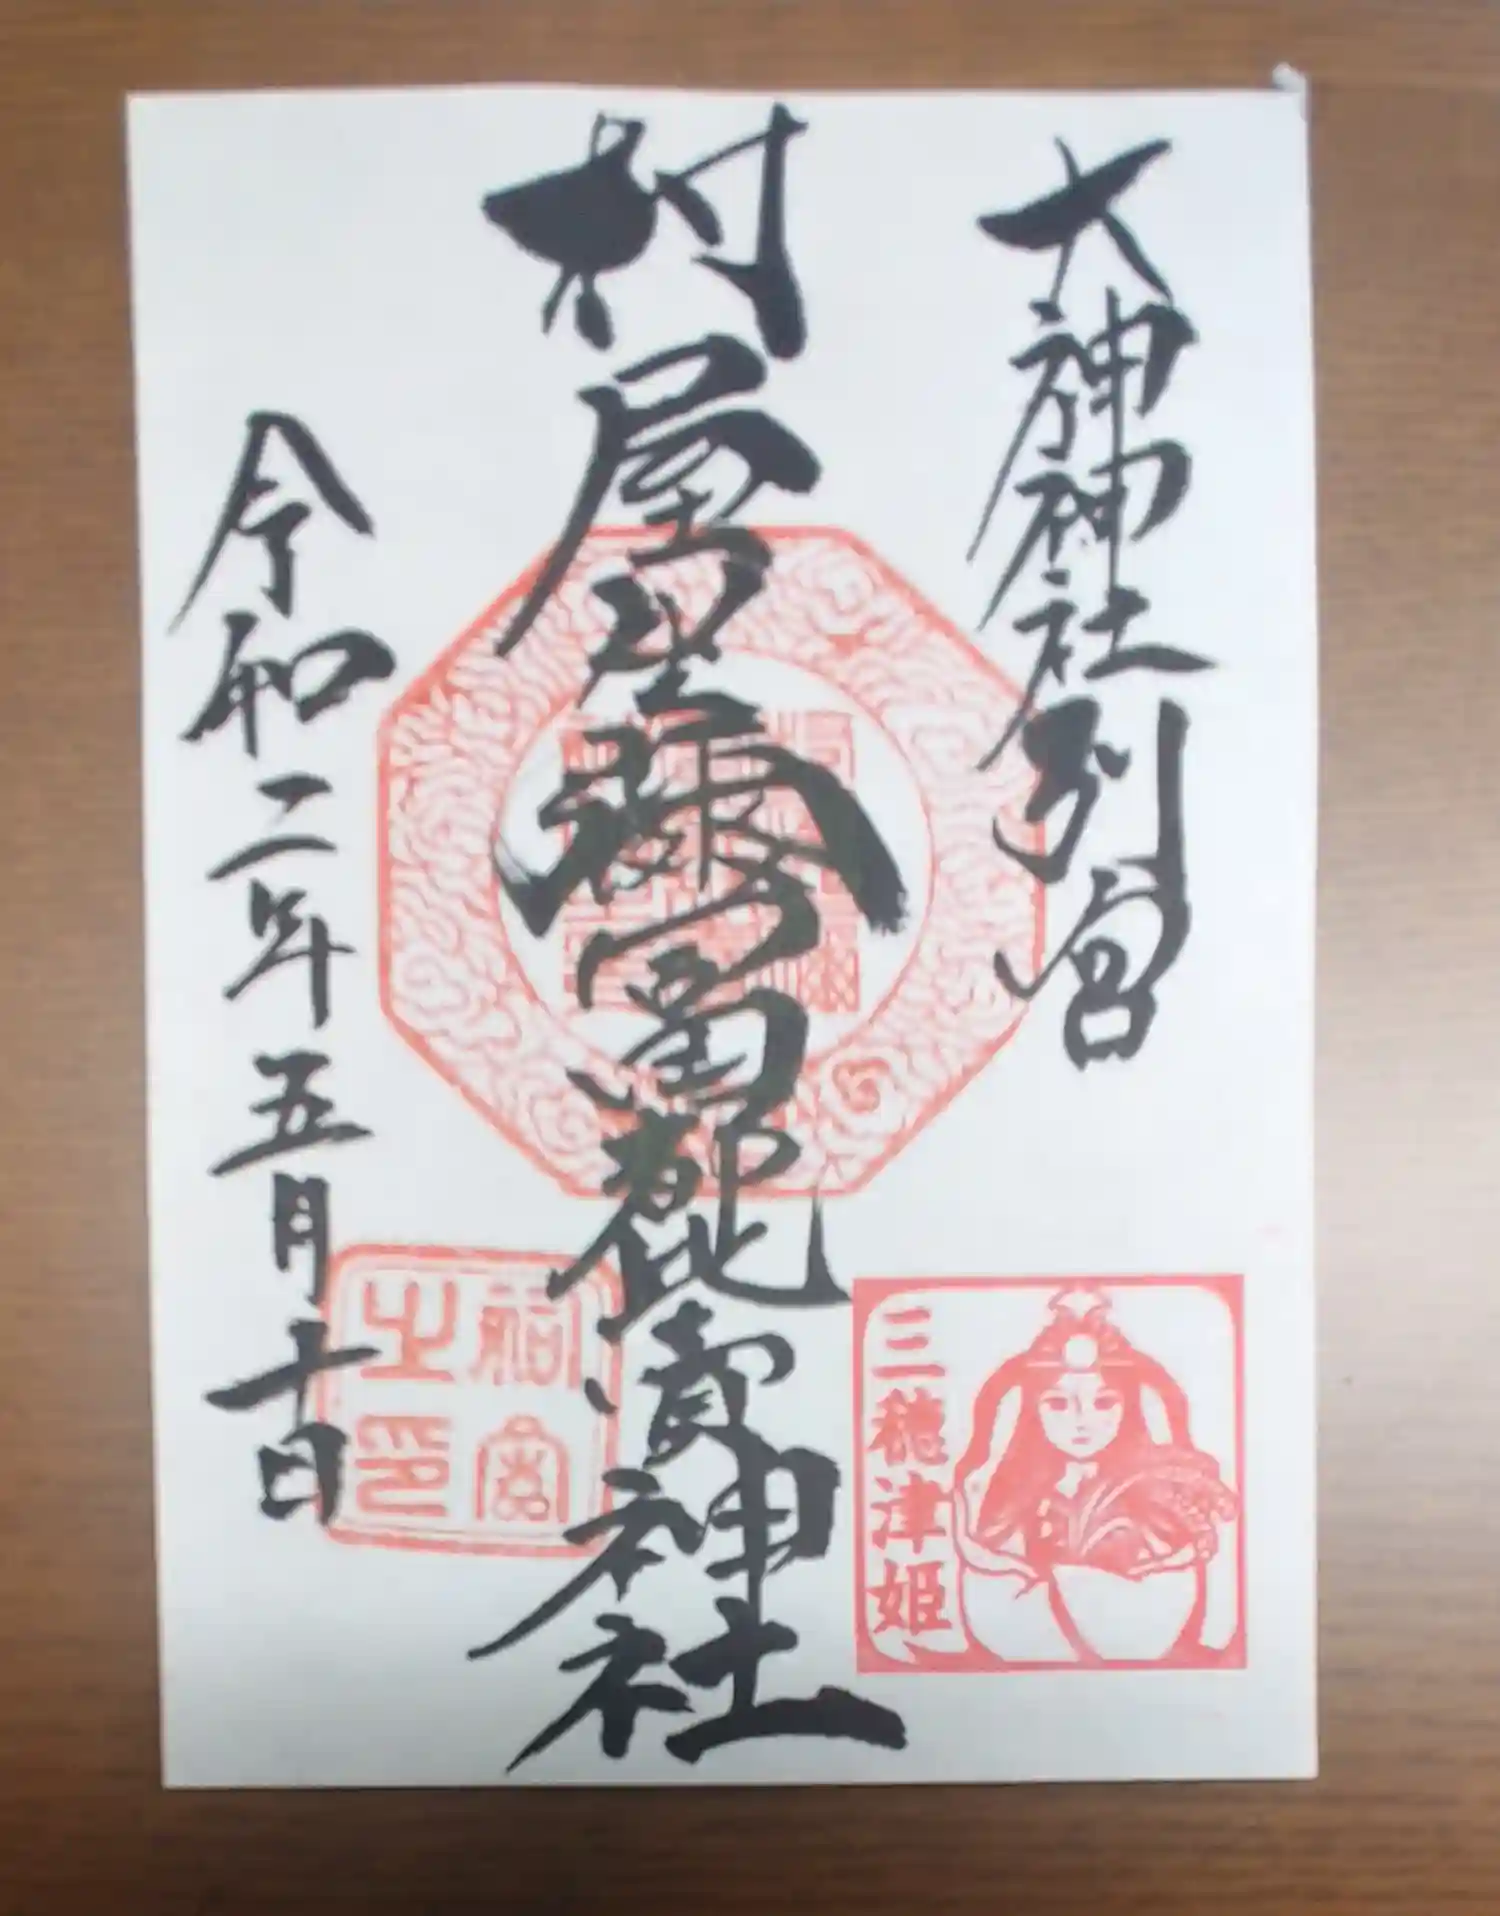 大神神社別宮
村屋坐彌冨都比賣神社
令和二年五月十日
三穂津姫
祠宮之印